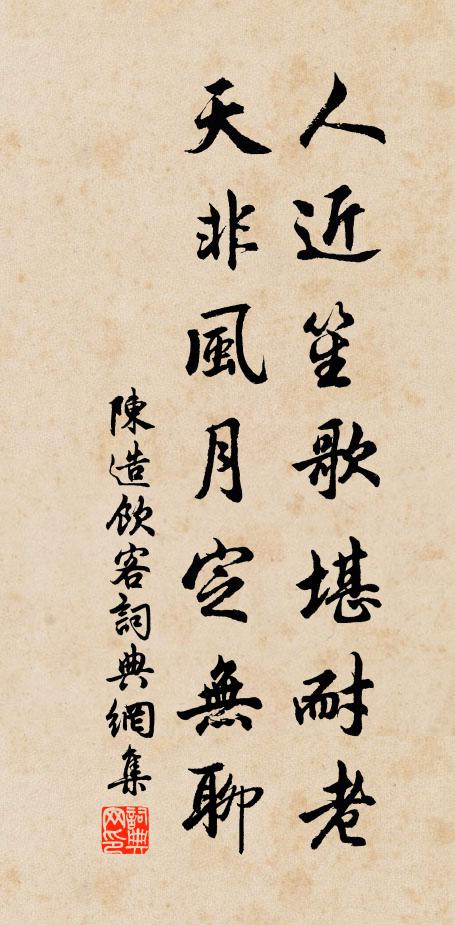 人近笙歌堪耐老
天非風月定無聊
陳造飲客詞典網集
詞典網印